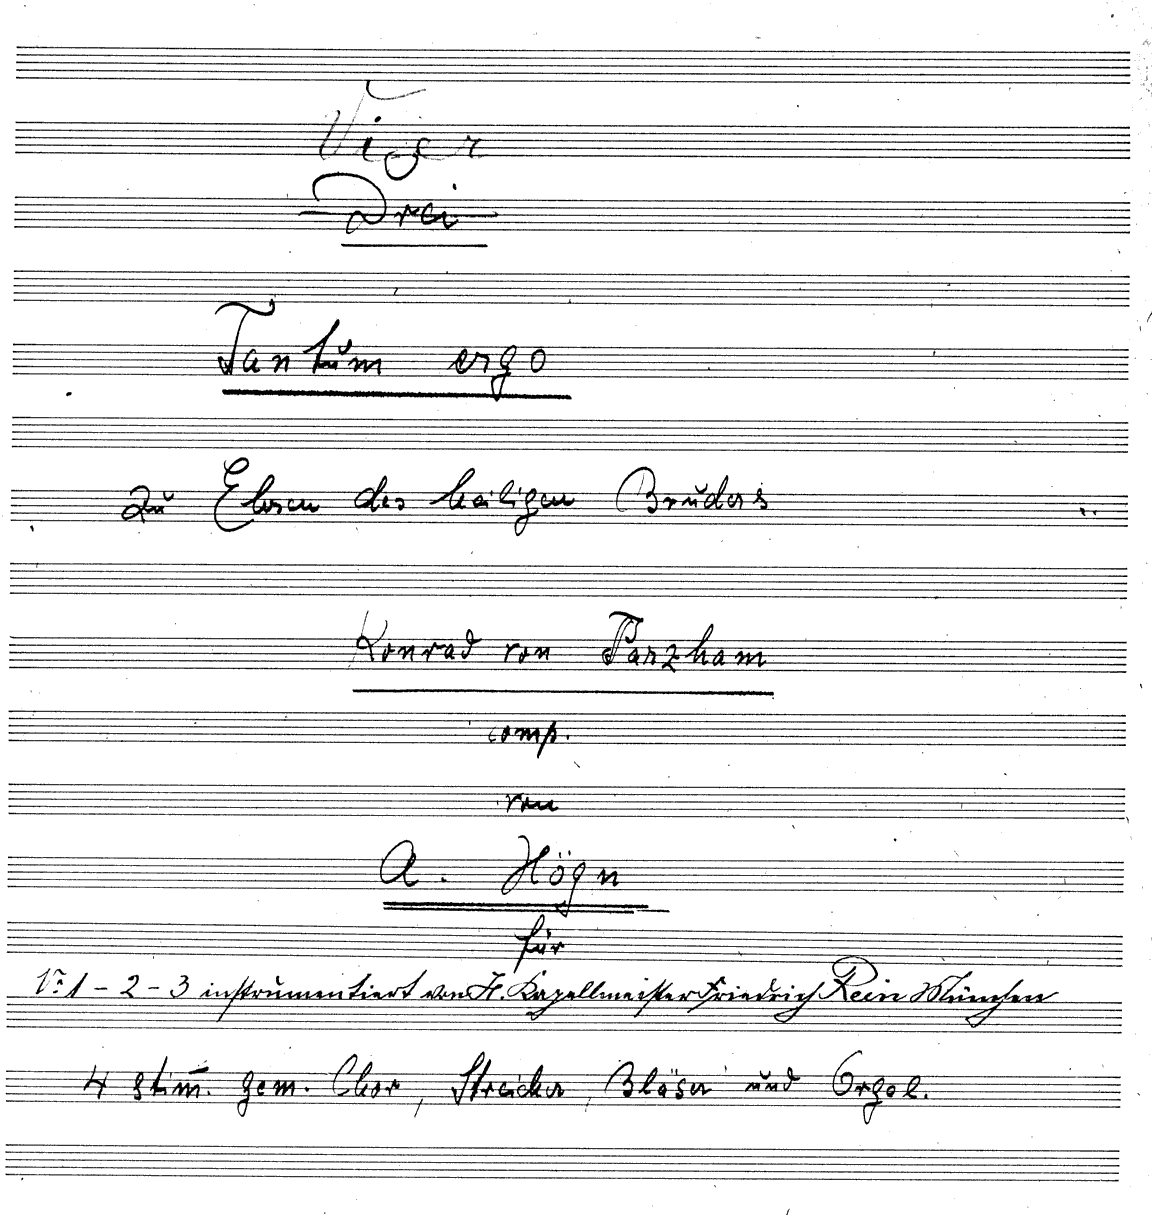 Vier
Drei
Tantum ergo
zu Ehren des heiligen Bruders
Konrad von Parzham
comp.
von
A. Högn
für
No 1 - 2 - 3 instrumentiert von H. Kapellmeister Friedrich Rein München
4 stim̄. gem. Chor, Streicher, Bläser und Orgel.